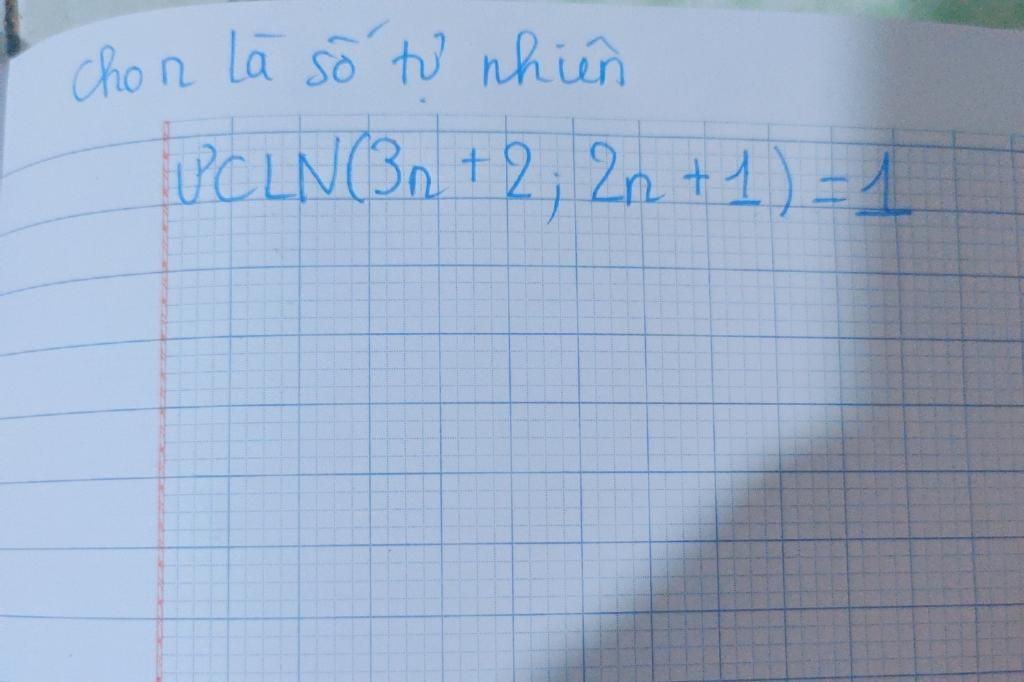 cho n là số tự nhiên
ƯCLN(3n + 2; 2n + 1) = 1